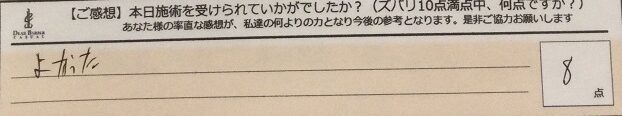 【ご感想】本日施術を受けられていかがでしたか？（ズバリ10点満点中、何点ですか？）
あなた様の率直な感想が、私達の何よりの力となり今後の参考となります。是非ご協力お願いします
DEAR BARBER
CASUAL
よかった
8
点